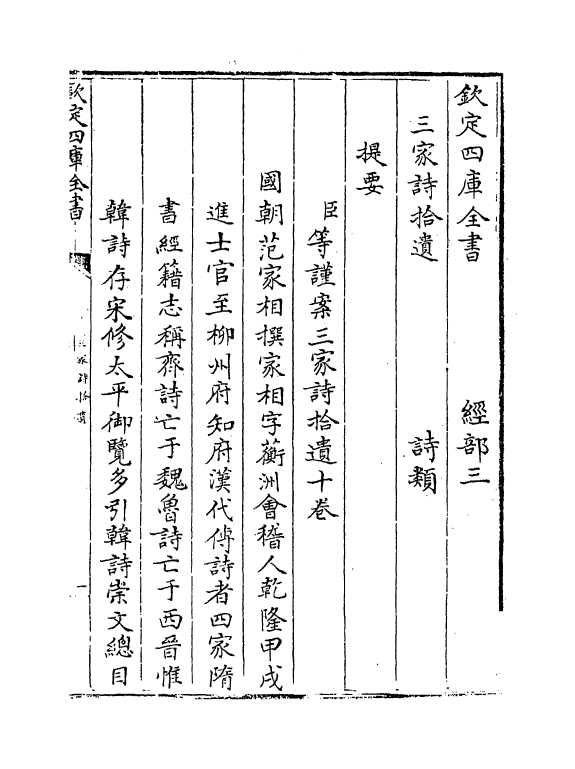 欽定四庫全書　經部三
三家詩拾遺　詩類
提要
臣等謹案三家詩拾遺十卷
國朝范家相撰家相字蘅洲會稽人乾隆甲戌
進士官至柳州府知府漢代傳詩者四家隋
書經籍志稱齊詩亡于魏魯詩亡于西晉惟
韓詩存宋修太平御覽多引韓詩崇文總目
欽定四庫全書
三家詩拾遺
一